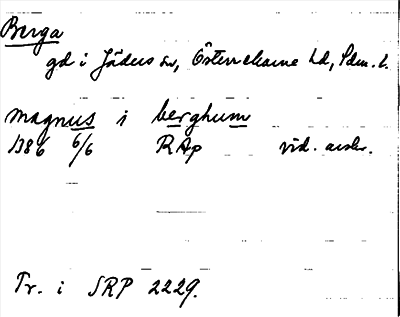 Berga
gd i Jäders sn, Österrekarne hd, Sdm. l.
magnus i berghum
1386 6/6 RAp vid. avskr.
Tr. i SRP 2229.